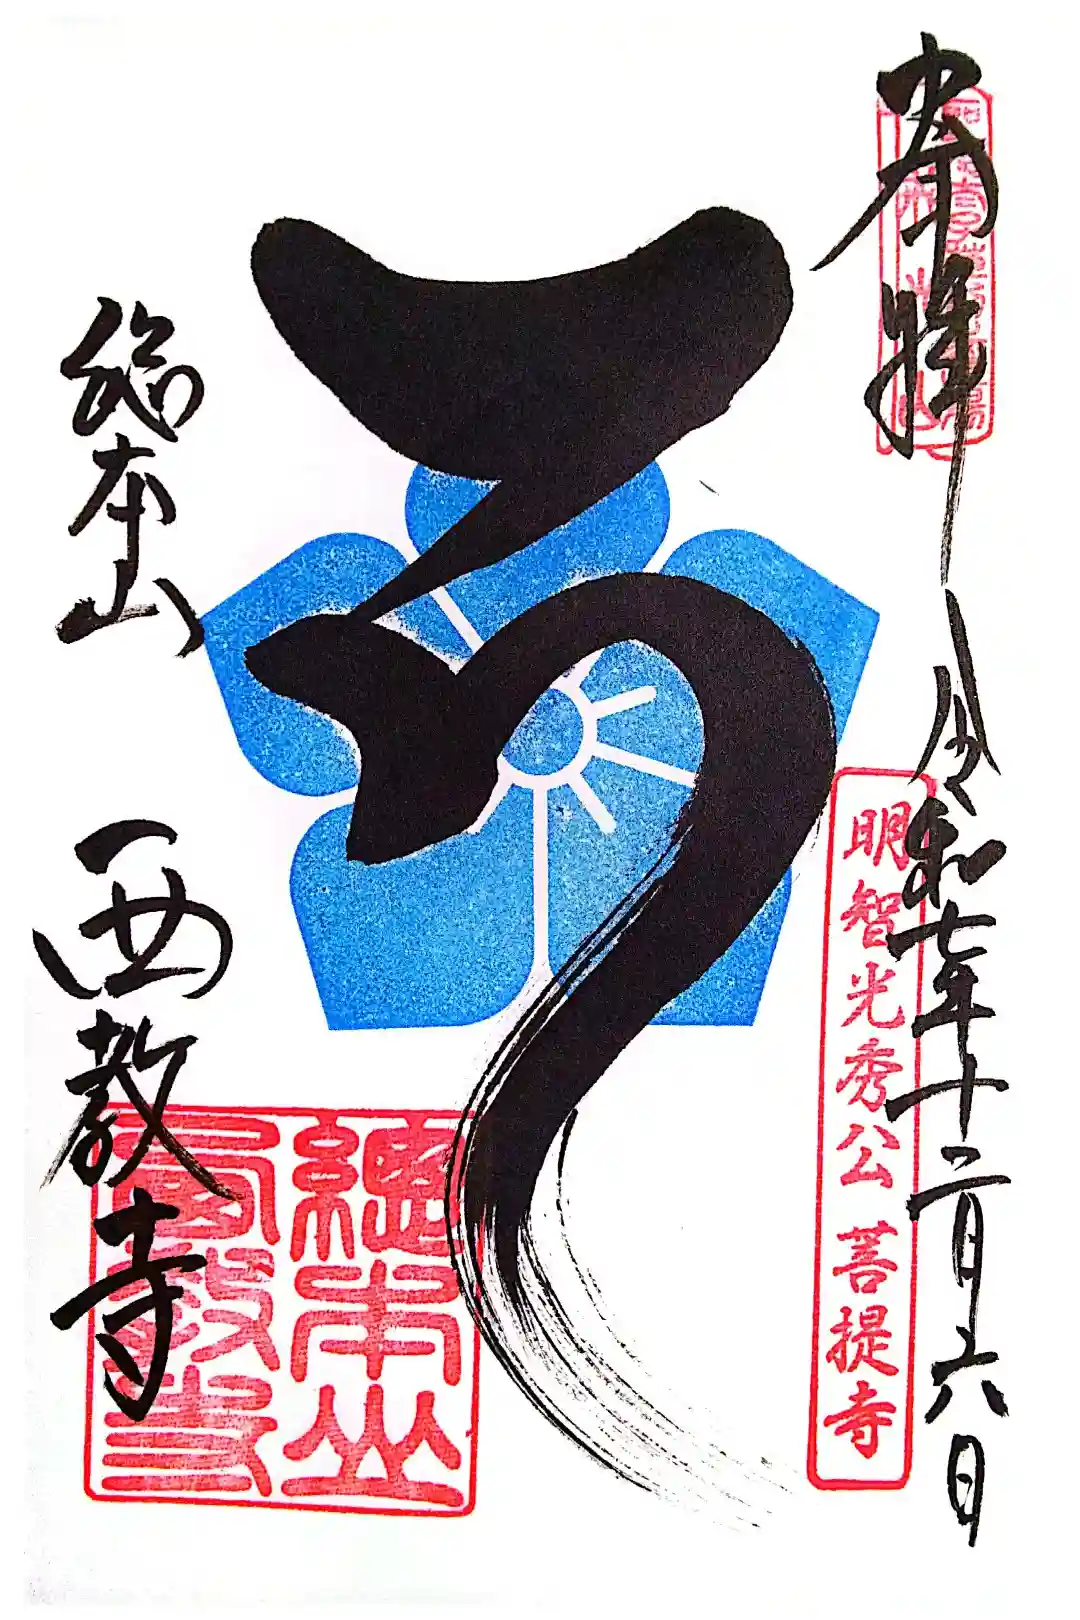 奉拝
令和七年十二月十六日
明智光秀公 菩提寺
總本山
西教寺
總本山
西教寺